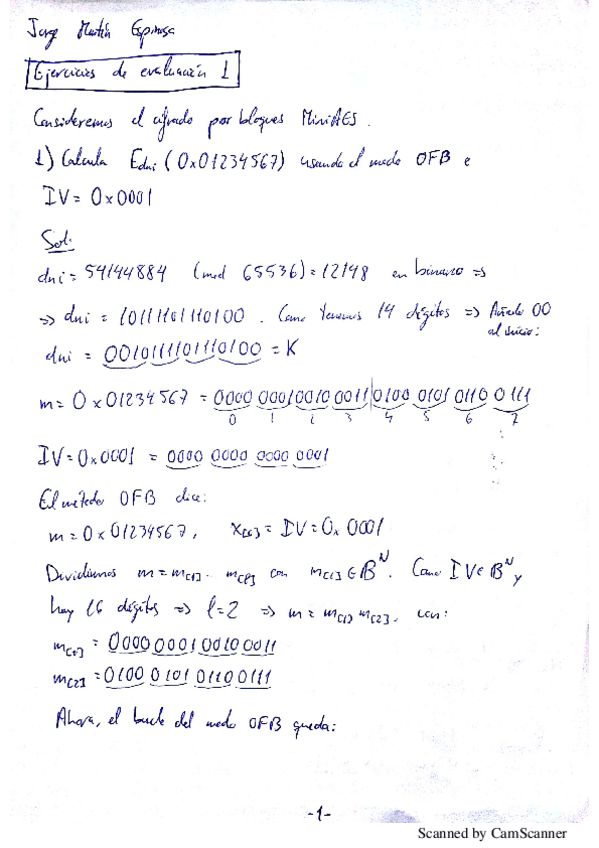 Jorge Martín Espinosa
Ejercicios de evaluación 1
Consideremos el cifrado por bloques MiniAES.
1) Calcula Edni (0x01234567) usando el modo OFB e
IV = 0x0001
Sol:
dni = 54144884 (mod 65536) = 12148 en binario ⇒
⇒ dni = 10111101110100. Como tenemos 14 dígitos ⇒ Añado 00
al inicio:
dni = 0010111101110100 = K
m = 0x01234567 = 0000 0001 0010 0011 0100 0101 0110 0111
0 1 2 3 4 5 6 7
IV = 0x0001 = 0000 0000 0000 0001
El método OFB dice:
m = 0x01234567, x[0] = IV = 0x0001
Dividimos m = m[1]... m[l] con m[i] ∈ B^N. Como IV ∈ B^N y
hay 16 dígitos ⇒ l = 2 ⇒ m = m[1] m[2], con:
m[1] = 0000 0001 0010 0011
m[2] = 0100 0101 0110 0111
Ahora, el bucle del modo OFB queda:
-1-
Scanned by CamScanner